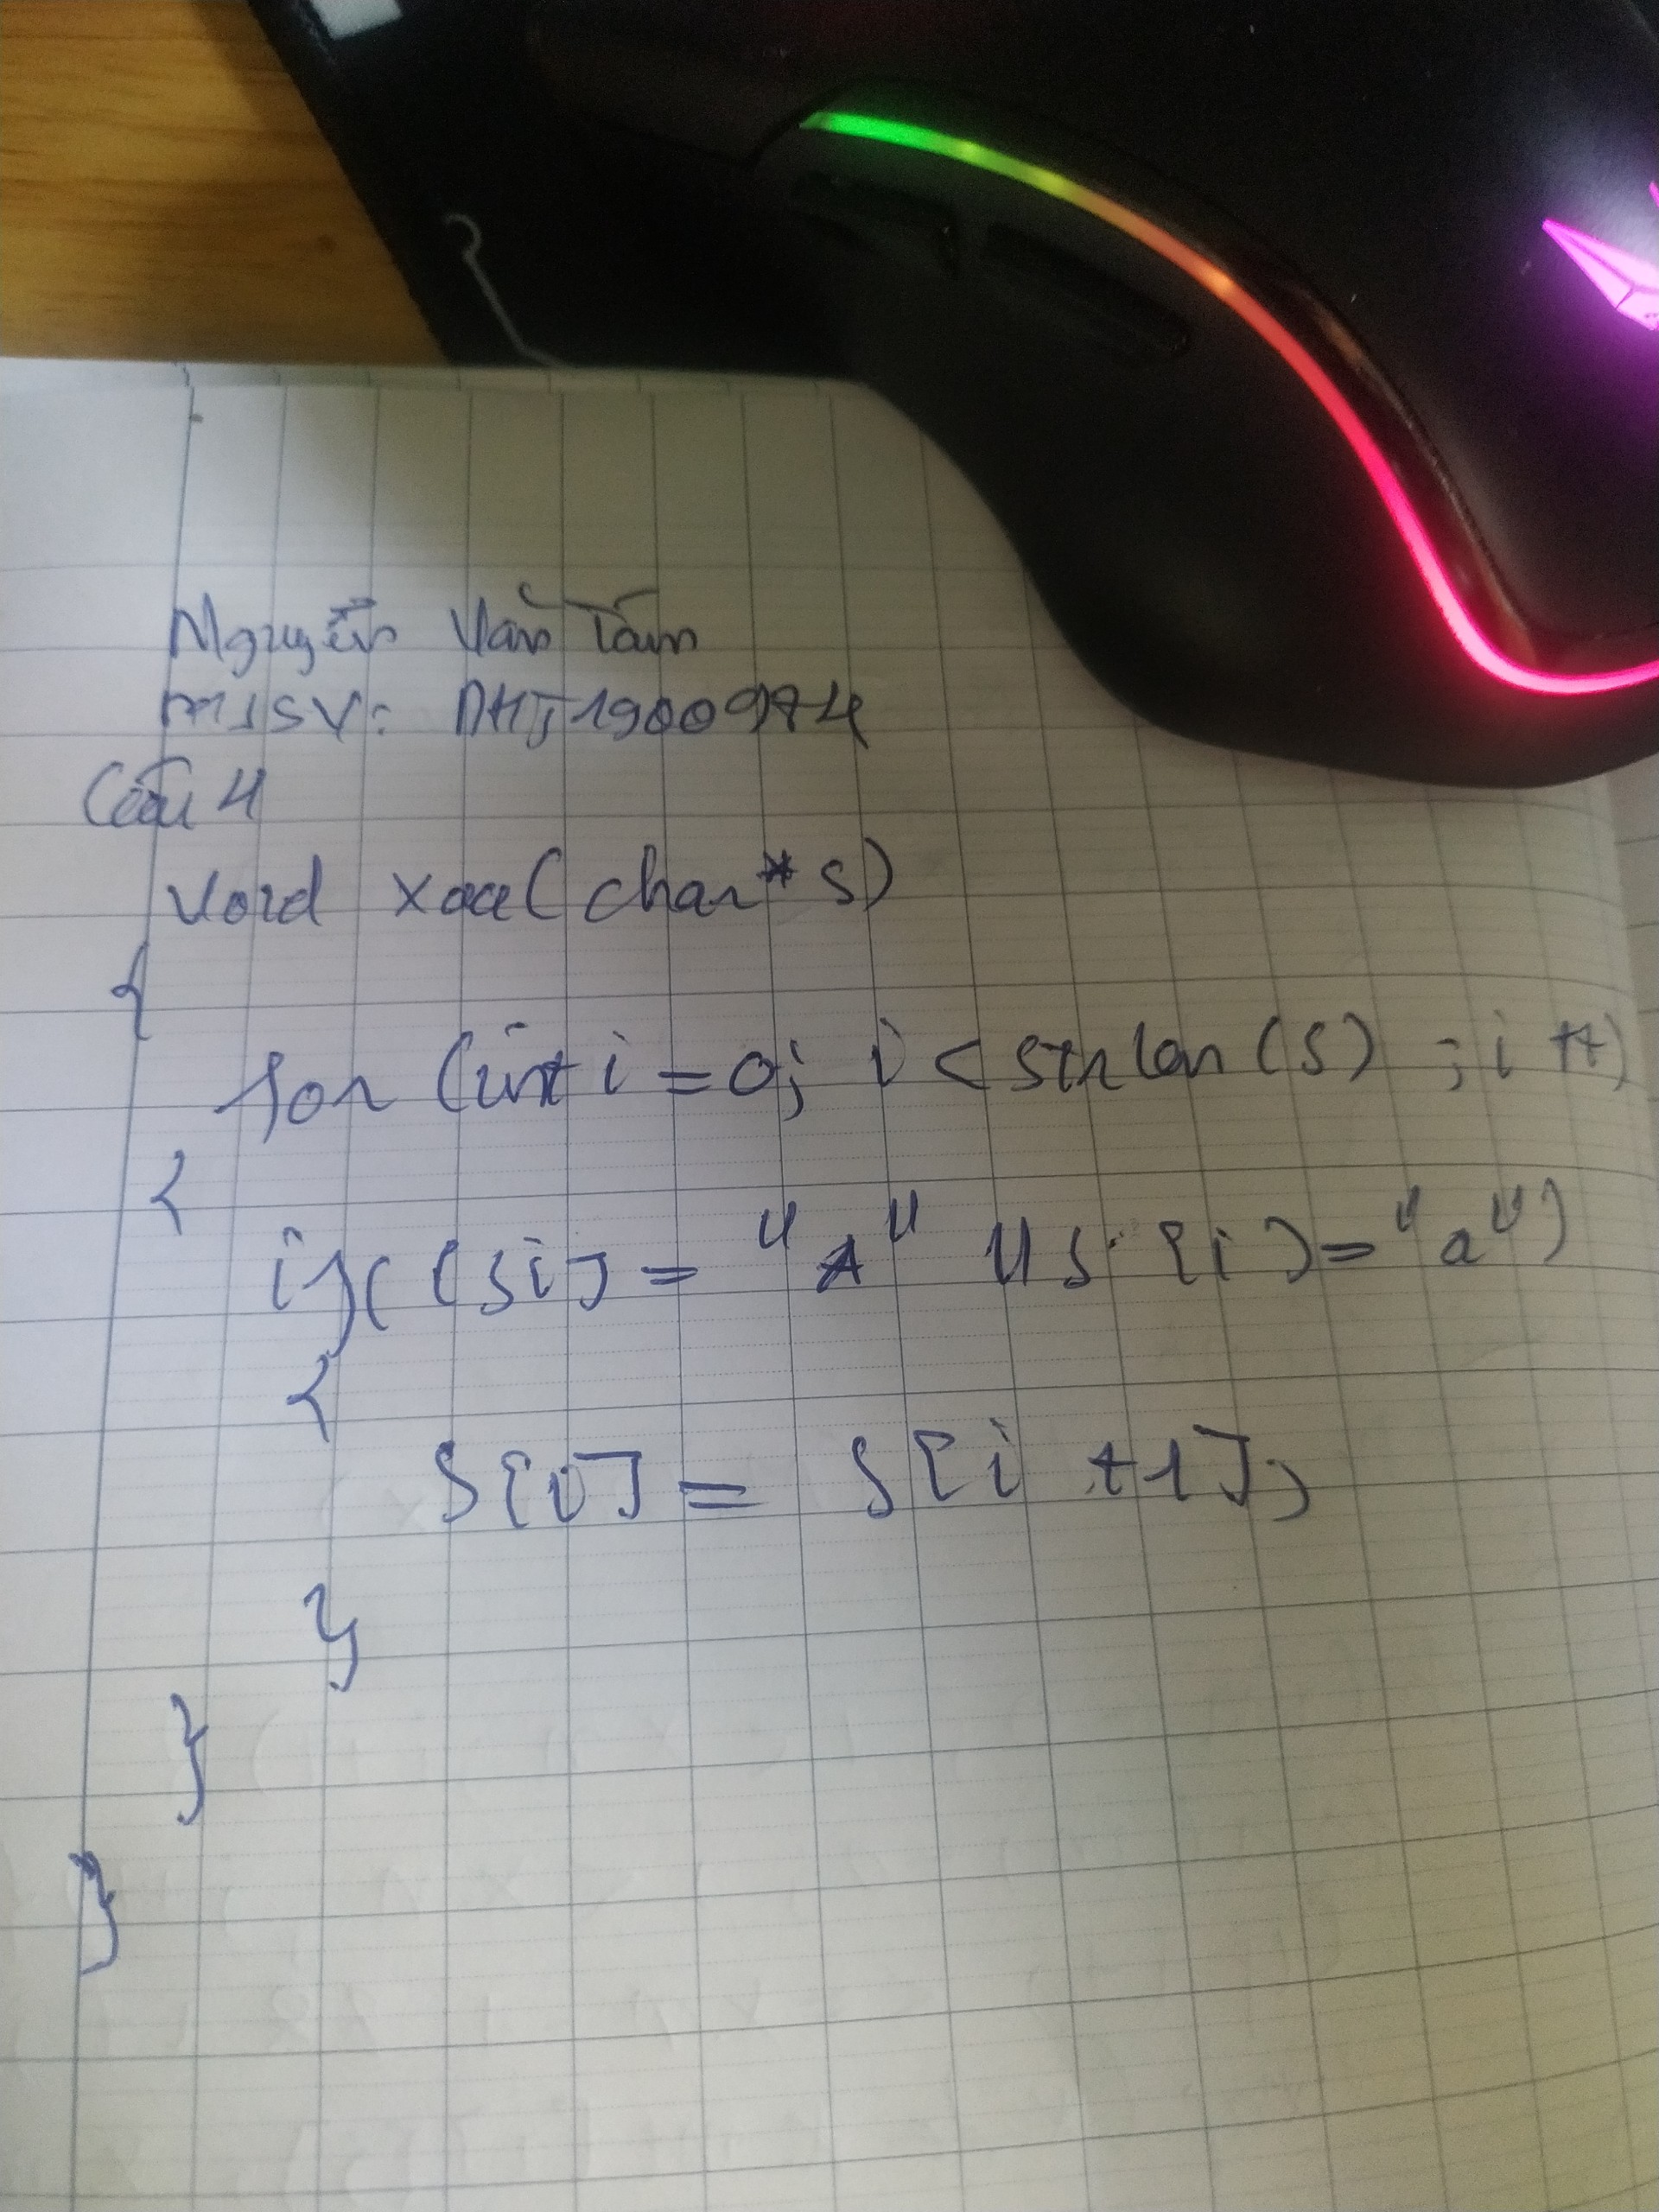 Nguyễn Văn Tâm
MSV: DHJ1900974
Câu 4
void xoa(char* s)
{
for (int i = 0; i < strlen(s) ; i ++)
{
if( (si] = "A" || s [i] = "a")
{
S[i] = S[i +1];
}
}
}